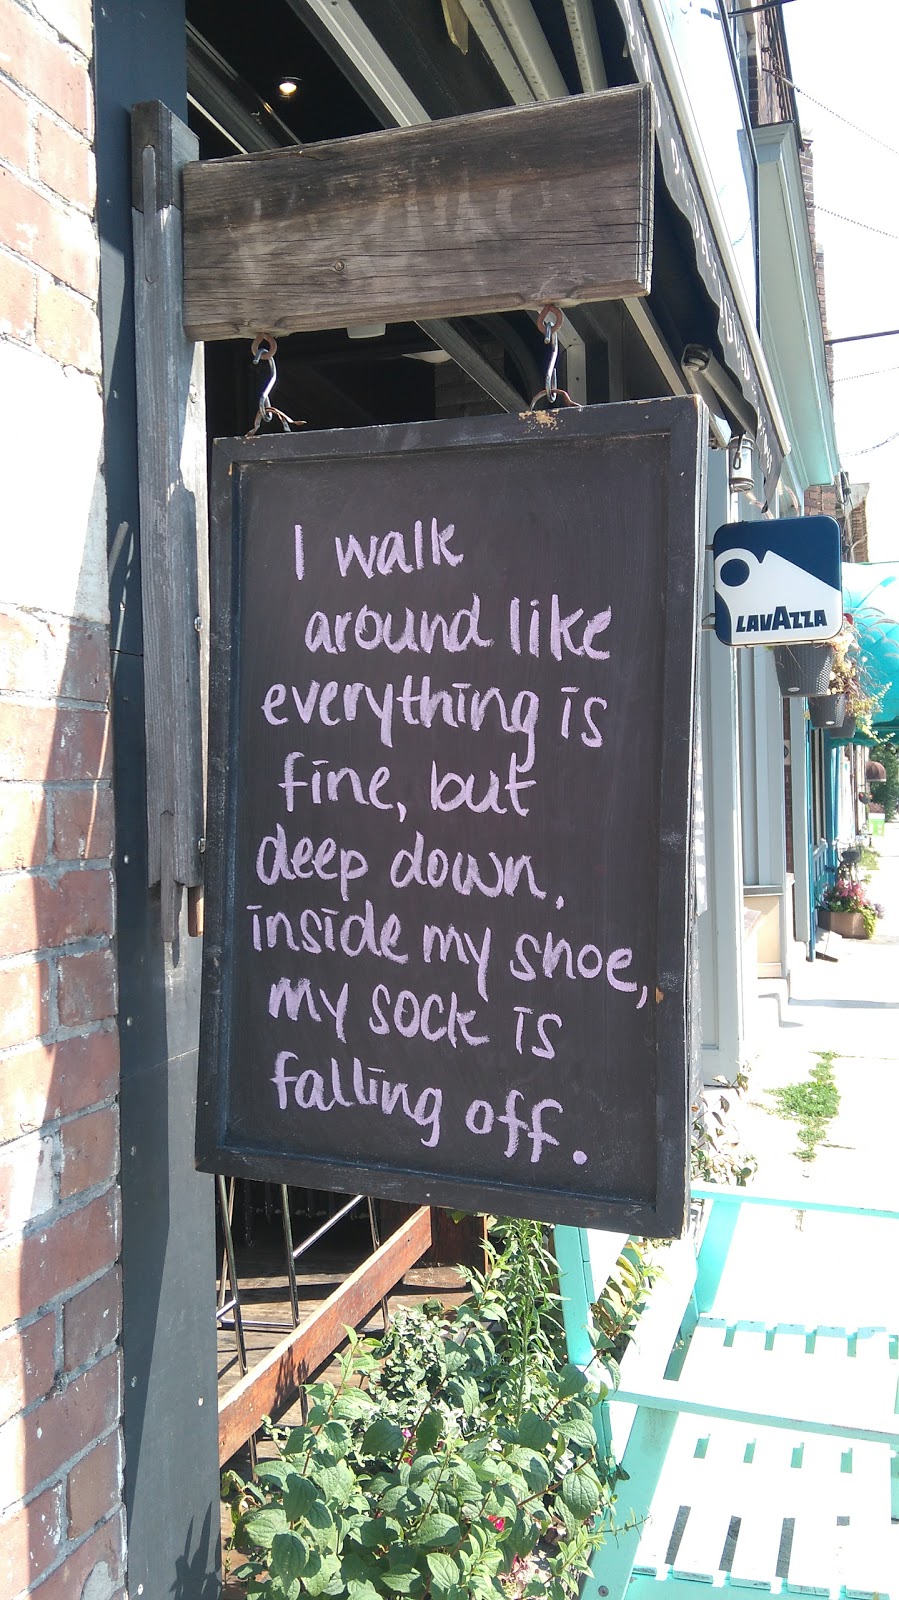 I walk
around like
everything is
fine, but
deep down,
inside my shoe,
my sock is
falling off.
LAVAZZA